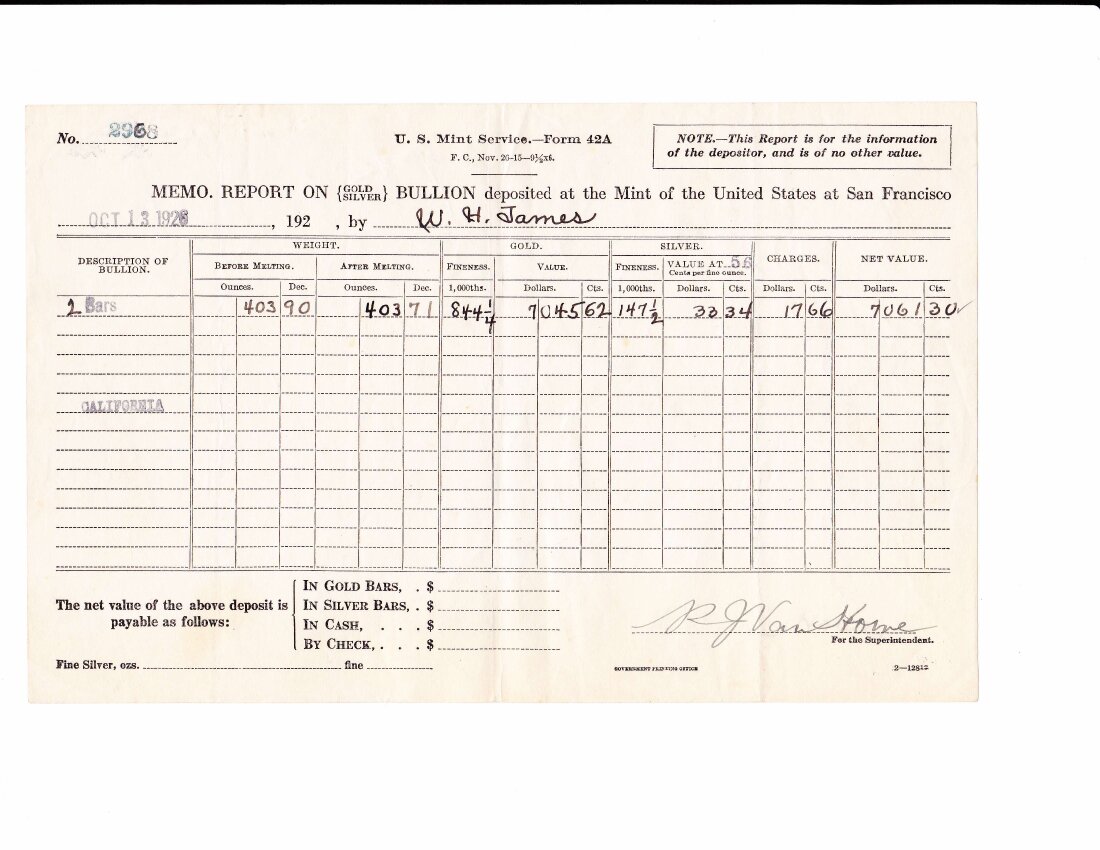 No. 2968
U. S. Mint Service.—Form 42A
F. C., Nov. 26-15—9½x6.
NOTE.—This Report is for the information
of the depositor, and is of no other value.
MEMO. REPORT ON {GOLD SILVER} BULLION deposited at the Mint of the United States at San Francisco
OCT 13 1926, 192 , by W. H. James
DESCRIPTION OF BULLION. WEIGHT. GOLD. SILVER. CHARGES. NET VALUE.
BEFORE MELTING. AFTER MELTING. FINENESS. VALUE. FINENESS. VALUE AT 56 Cents per fine ounce.
Ounces. Dec. Ounces. Dec. 1,000ths. Dollars. Cts. 1,000ths. Dollars. Cts. Dollars. Cts. Dollars. Cts.
2 Bars 403 90 403 71 844¼ 7045 62 147½ 33 34 17 66 7061 30 ✓
CALIFORNIA
The net value of the above deposit is
payable as follows:
IN GOLD BARS, . $
IN SILVER BARS, . $
IN CASH, . . . $
BY CHECK, . . . $
R J Van Horne
For the Superintendent.
Fine Silver, ozs. fine
GOVERNMENT PRINTING OFFICE
2—12812